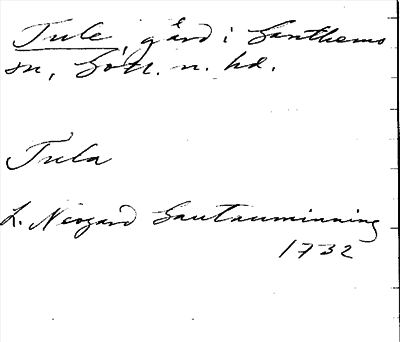 Tule, gård i Ganthems
sn, Gotl. n. hd.
Tula
L. Neogard Gautauminning
1732